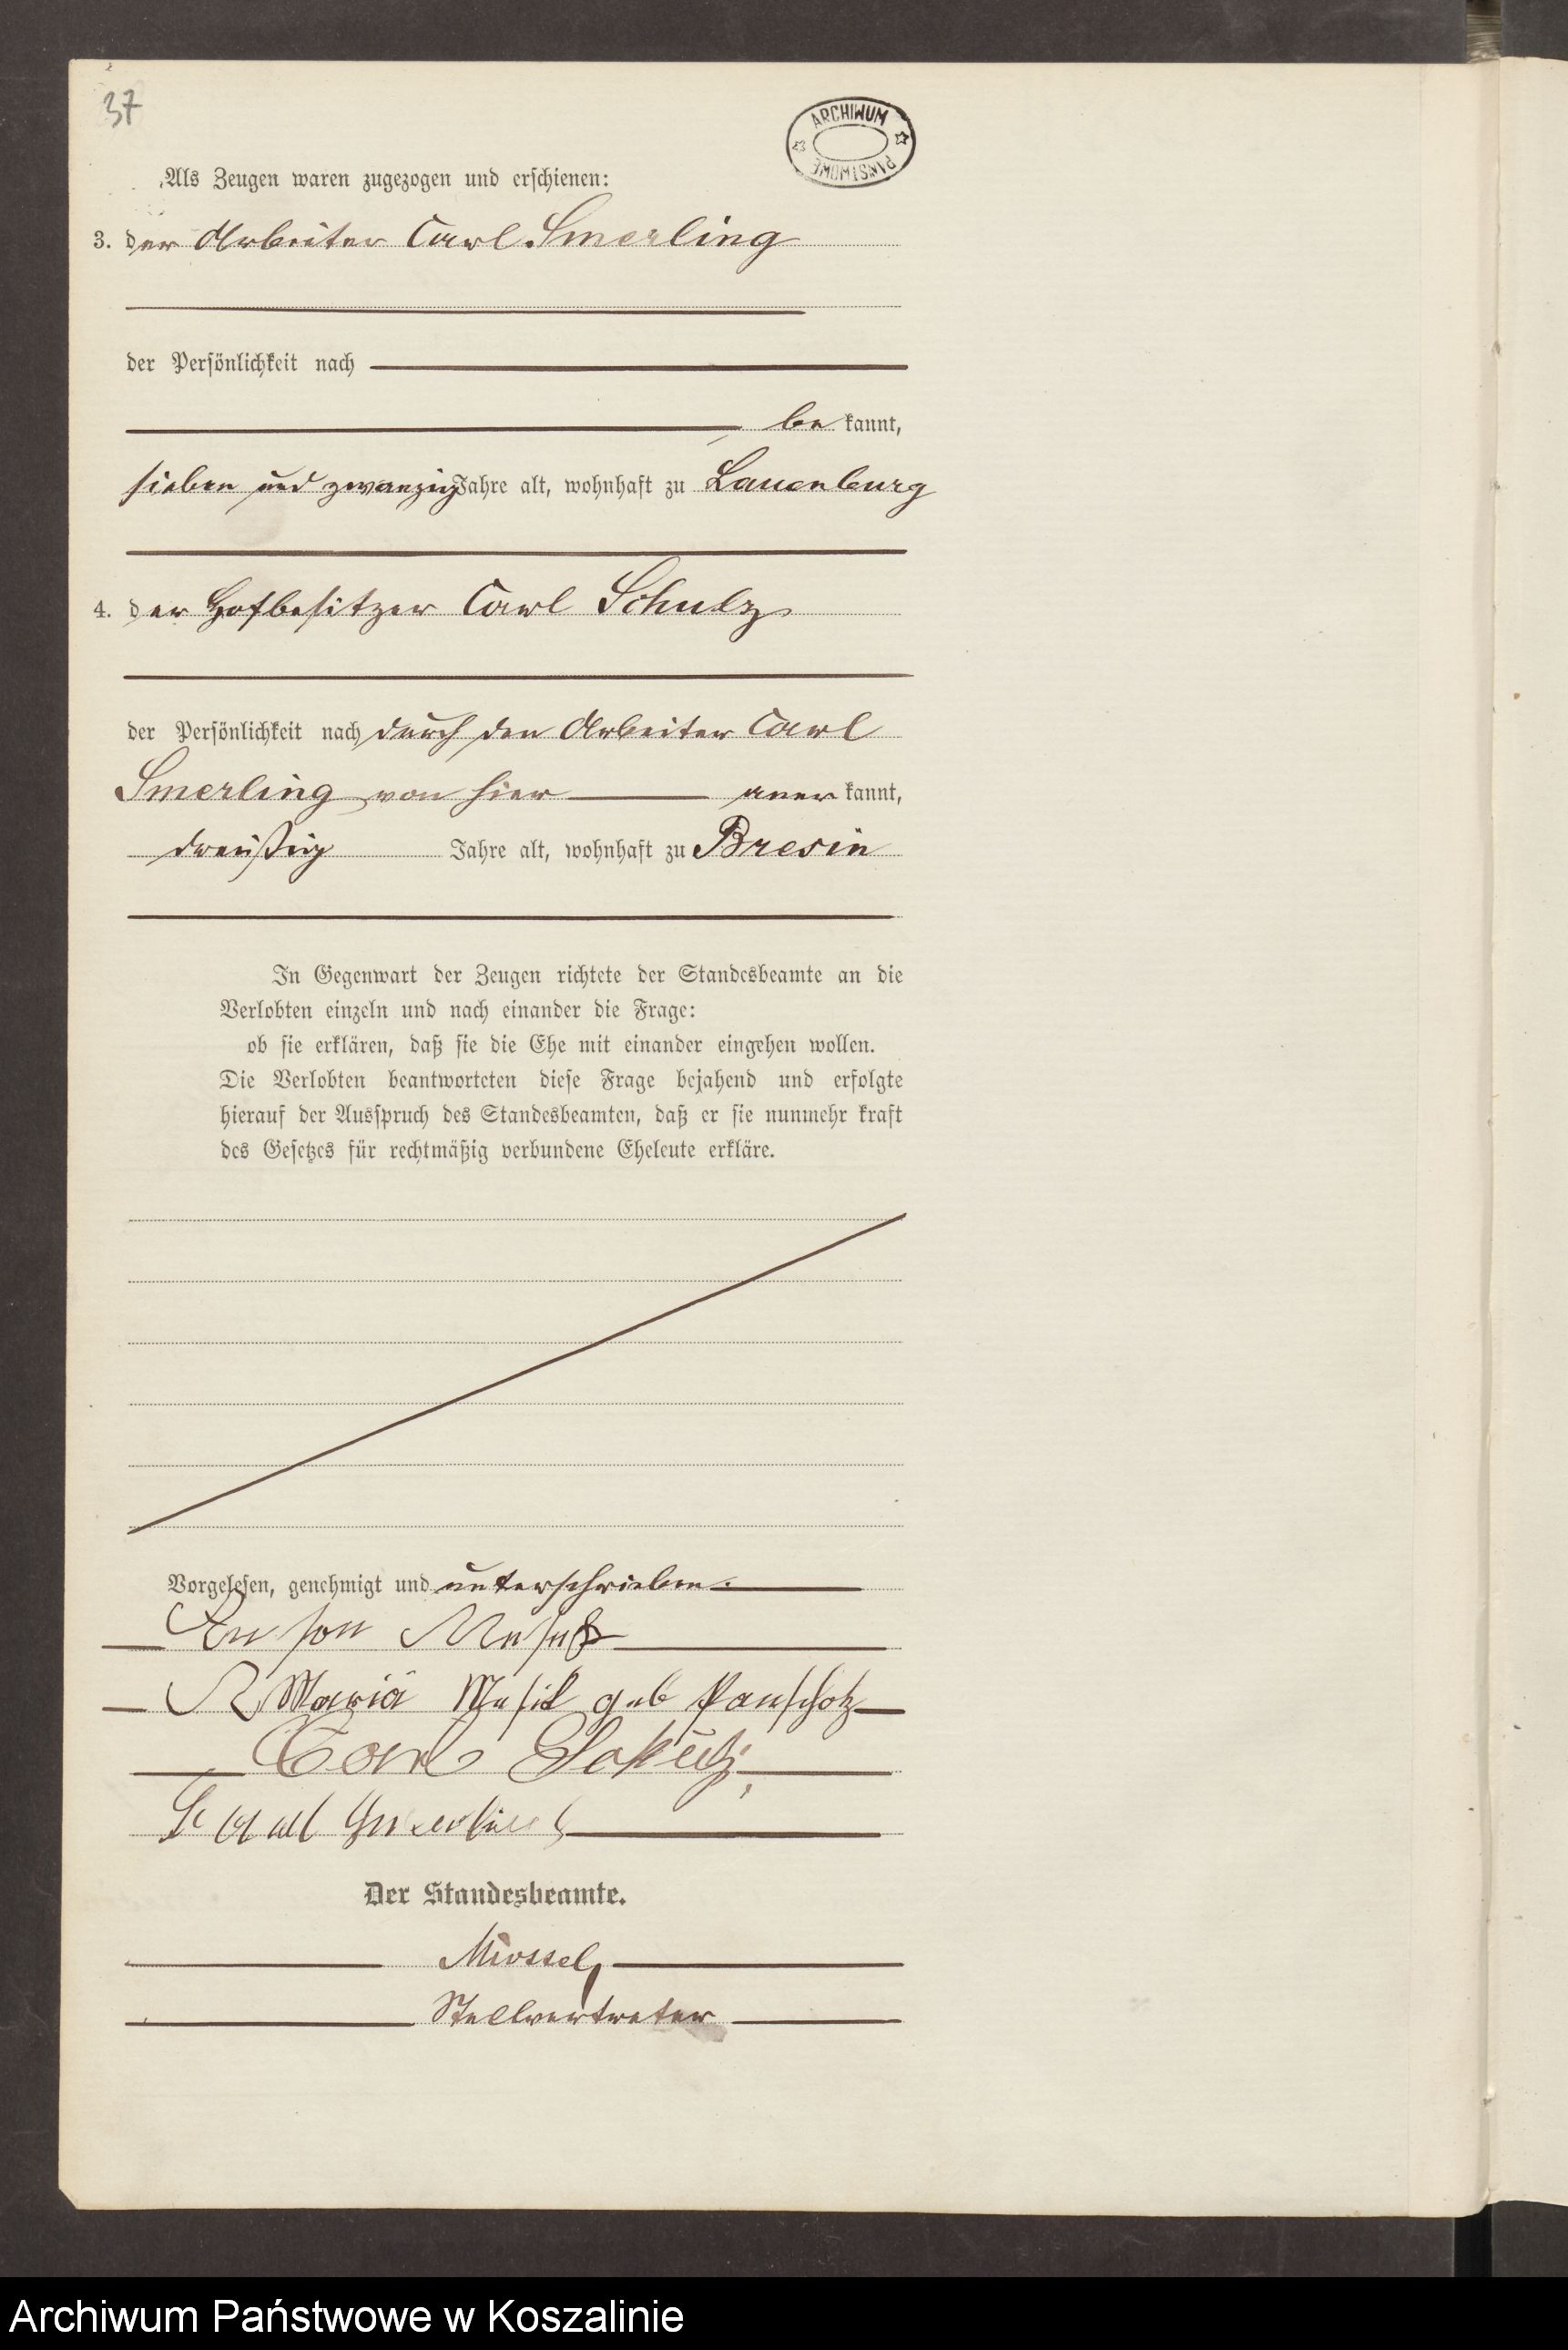 37
ARCHIWUM PAŃSTWOWE
Als Zeugen waren zugezogen und erschienen:
3. der Arbeiter Carl Smerling
der Persönlichkeit nach
be kannt,
sieben und zwanzig Jahre alt, wohnhaft zu Lauenburg
4. der Hofbesitzer Carl Schulz
der Persönlichkeit nach durch den Arbeiter Carl
Smerling von hier aner kannt,
dreißig Jahre alt, wohnhaft zu Bresin
In Gegenwart der Zeugen richtete der Standesbeamte an die
Verlobten einzeln und nach einander die Frage:
ob sie erklären, daß sie die Ehe mit einander eingehen wollen.
Die Verlobten beantworteten diese Frage bejahend und erfolgte
hierauf der Ausspruch des Standesbeamten, daß er sie nunmehr kraft
des Gesetzes für rechtmäßig verbundene Eheleute erkläre.
Vorgelesen, genehmigt und unterschrieben.
Maria Musik geb
Carl
Der Standesbeamte.
Stellvertreter
Archiwum Państwowe w Koszalinie